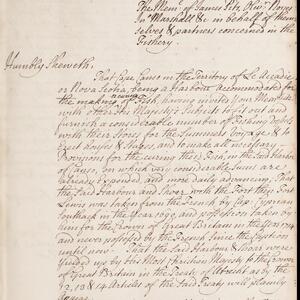 The Mem.ll of James Pitts, Benj.a Noyes
Jn.o Marshall &c in behalf of them
selves & partners concerned in the
Fishery.
Humbly Sheweth.
That Cape Canso in the Territory of L'Accadie
or Nova Scotia, being a Harbour Accommodated for
the making of Fish having invited your Mem.lls
with other His Majesty's Subjects to fit out and
furnish a considerable number of Fishing Vessels
with their Stores for the Summers Voyage & to
erect houses & Stages, and to make all necessary
Provisions for the curing these Fish, in the said Harbour
of Canso, on which very considerable Sums are
already Expended, and more dayly advancing, That
the said Harbour and Shore, with the Fort then Fort
Lewis was taken from the French by Cap. Cyprean
Southack in the Year 1690, and possession taken by
him for the Crown of Great Britain in the Year 1714
and never possessed by the French since the Caption
untill now: That the said Harbour & shore were
yielded up by His Most Christian Majesty to the Crown
of Great Britain in the Treaty of Utrecht as by the
12, 13 & 14 Articles of the said Treaty will plainly
appear.